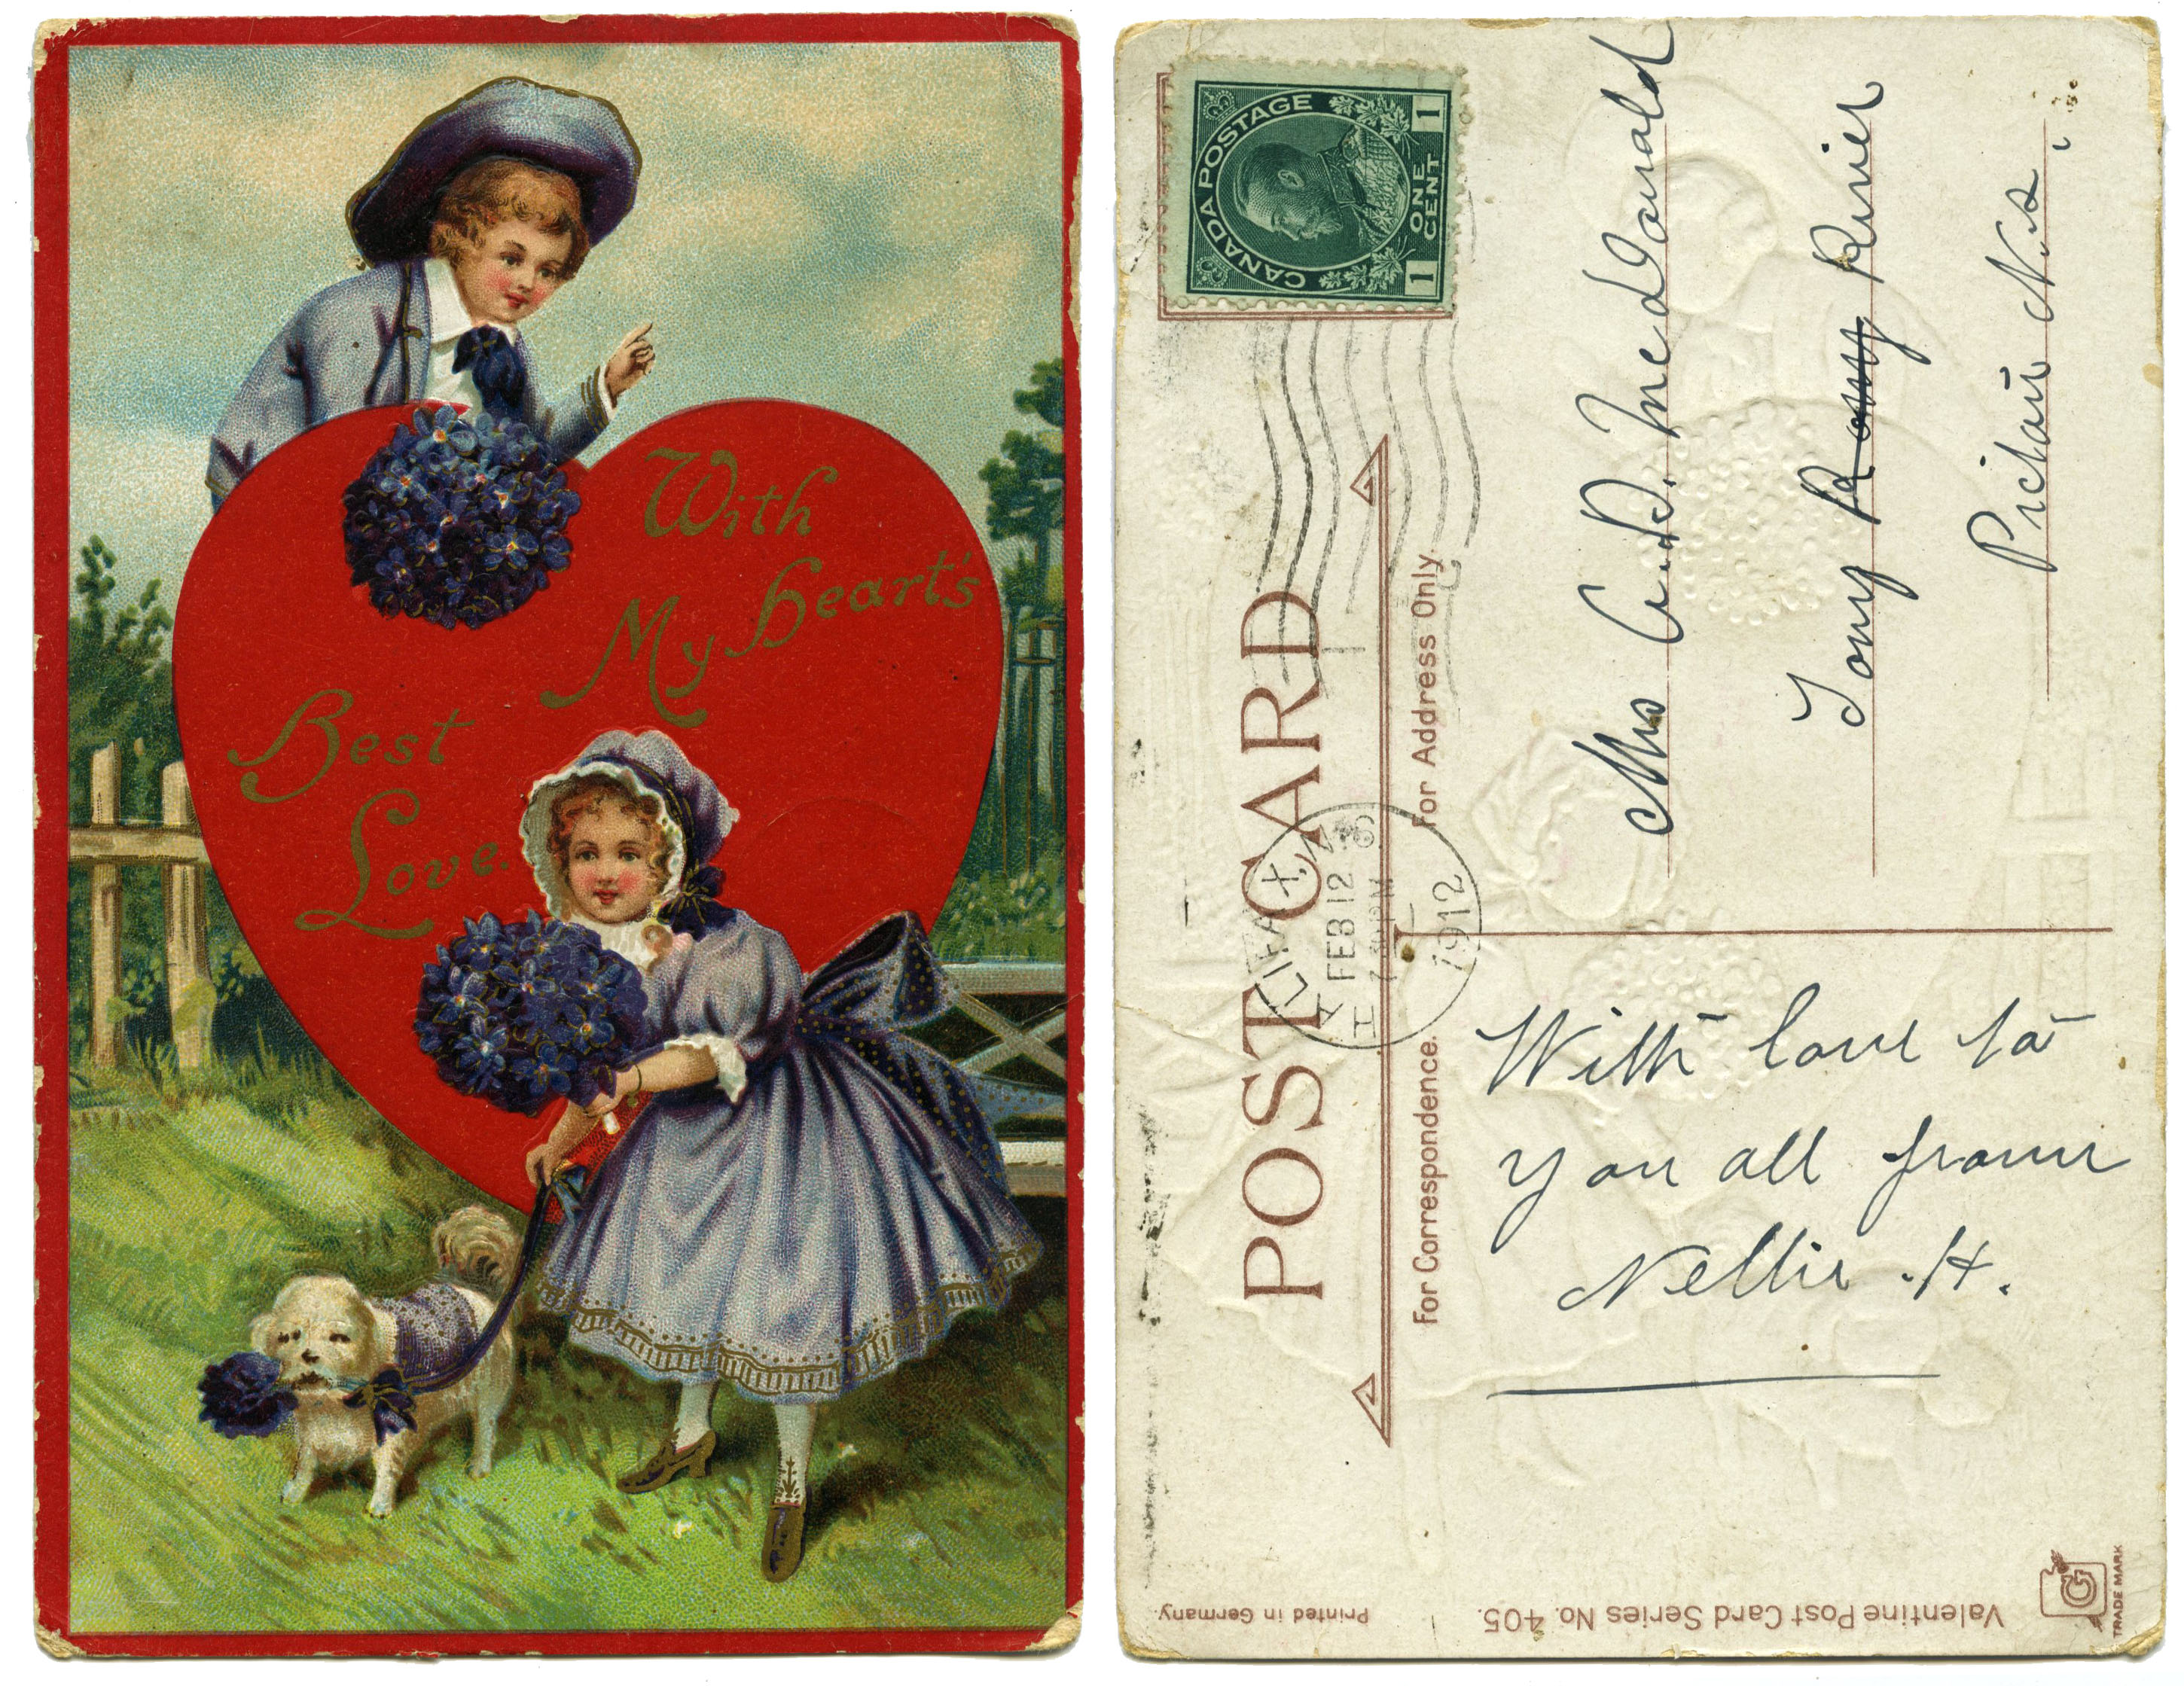 With
My Heart's
Best
Love.
CANADA POSTAGE
1 ONE CENT 1
POST CARD
HALIFAX, N.S.
FEB 12
1912
For Address Only.
Mrs A. D. McDonald
Tony River
Pictou N.S.
For Correspondence.
With love to
you all from
Nellie .H.
Printed in Germany.
Valentine Post Card Series No. 405.
G
TRADE MARK